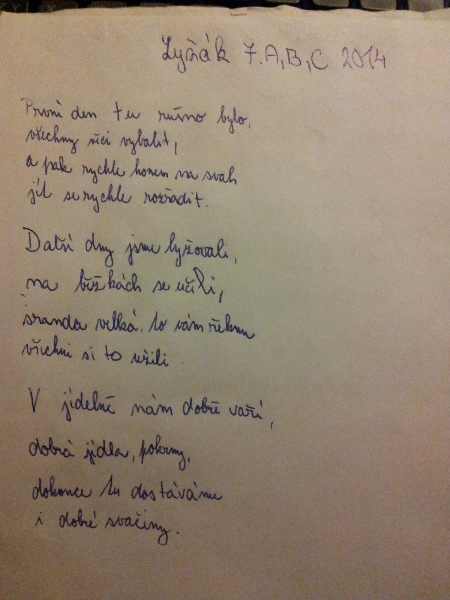 Lyžák 7.A,B,C 2014
První den tu rušno bylo,
všechny věci vybalit,
a pak rychle honem na svah
jít se rychle rozřadit.
Další dny jsme lyžovali,
na běžkách se učili,
sranda velká, to vám řeknu
všichni si to užili.
V jídelně nám dobře vaří,
dobrá jídla, pokrmy,
dokonce tu dostáváme
i dobré svačiny.